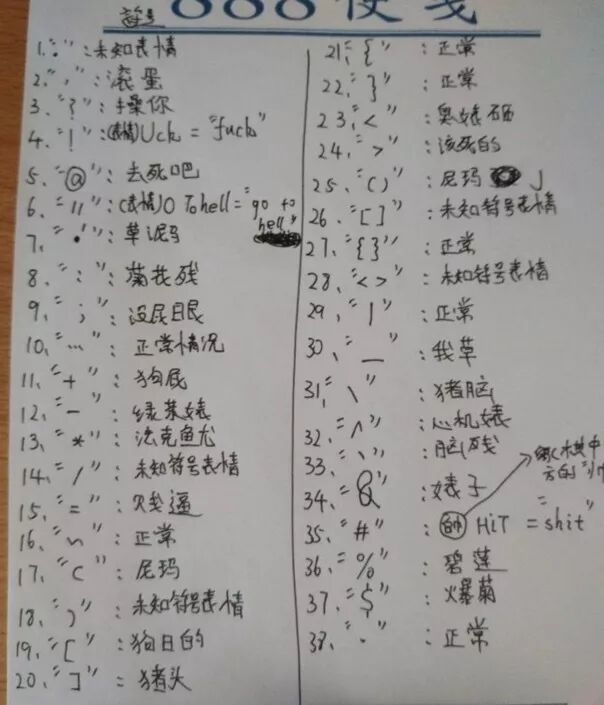 888便笺
符号
1."。":未知表情
2.",":滚蛋
3."?":操你
4."!":(表情)Uck="fuck"
5、"@":去死吧
6、"〃":(表情)O To hell="go to hell"
7、"•":草泥马
8、":":菊花残
9、";":没屁眼
10、"…":正常情况
11、"+":狗屁
12、"-":绿茶婊
13、"*":法克鱿
14、"/":未知符号表情
15、"=":欠逼
16、"~":正常
17、"(":尼玛
18、")":未知符号表情
19、"[":狗日的
20、"]"=猪头
21、"{":正常
22、"}":正常
23、"<":臭婊砸
24、">":该死的
25、"()":尼玛 J
26、"[]":未知符号表情
27、"{}":正常
28、"<>":未知符号表情
29、"|":正常
30、"_":我草
31、"\":猪脑
32、"^":心机婊
33、"`":脑残
34、"&":婊子
35、"#":帥 HiT="shit"
36、"%":碧莲
37、"$":爆菊
38、"·":正常